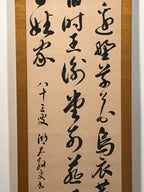 邊野草花烏衣巷
舊時王謝堂前燕
百姓家 八十三叟